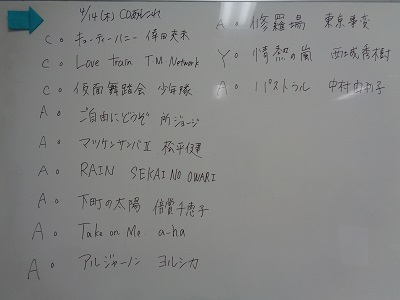 4/14(木) CDあれこれ
C。 キューティーハニー 倖田來未
C。 Love Train TM Network
C。 仮面舞踏会 少年隊
A。 ご自由にどうぞ 所ジョージ
A。 マツケンサンバⅡ 松平健
A。 RAIN SEKAI NO OWARI
A。 下町の太陽 倍賞千恵子
A。 Take on Me a-ha
A。 アルジャーノン ヨルシカ
A。 修羅場 東京事変
Y。 情熱の嵐 西城秀樹
A。 パストラル 中村由利子